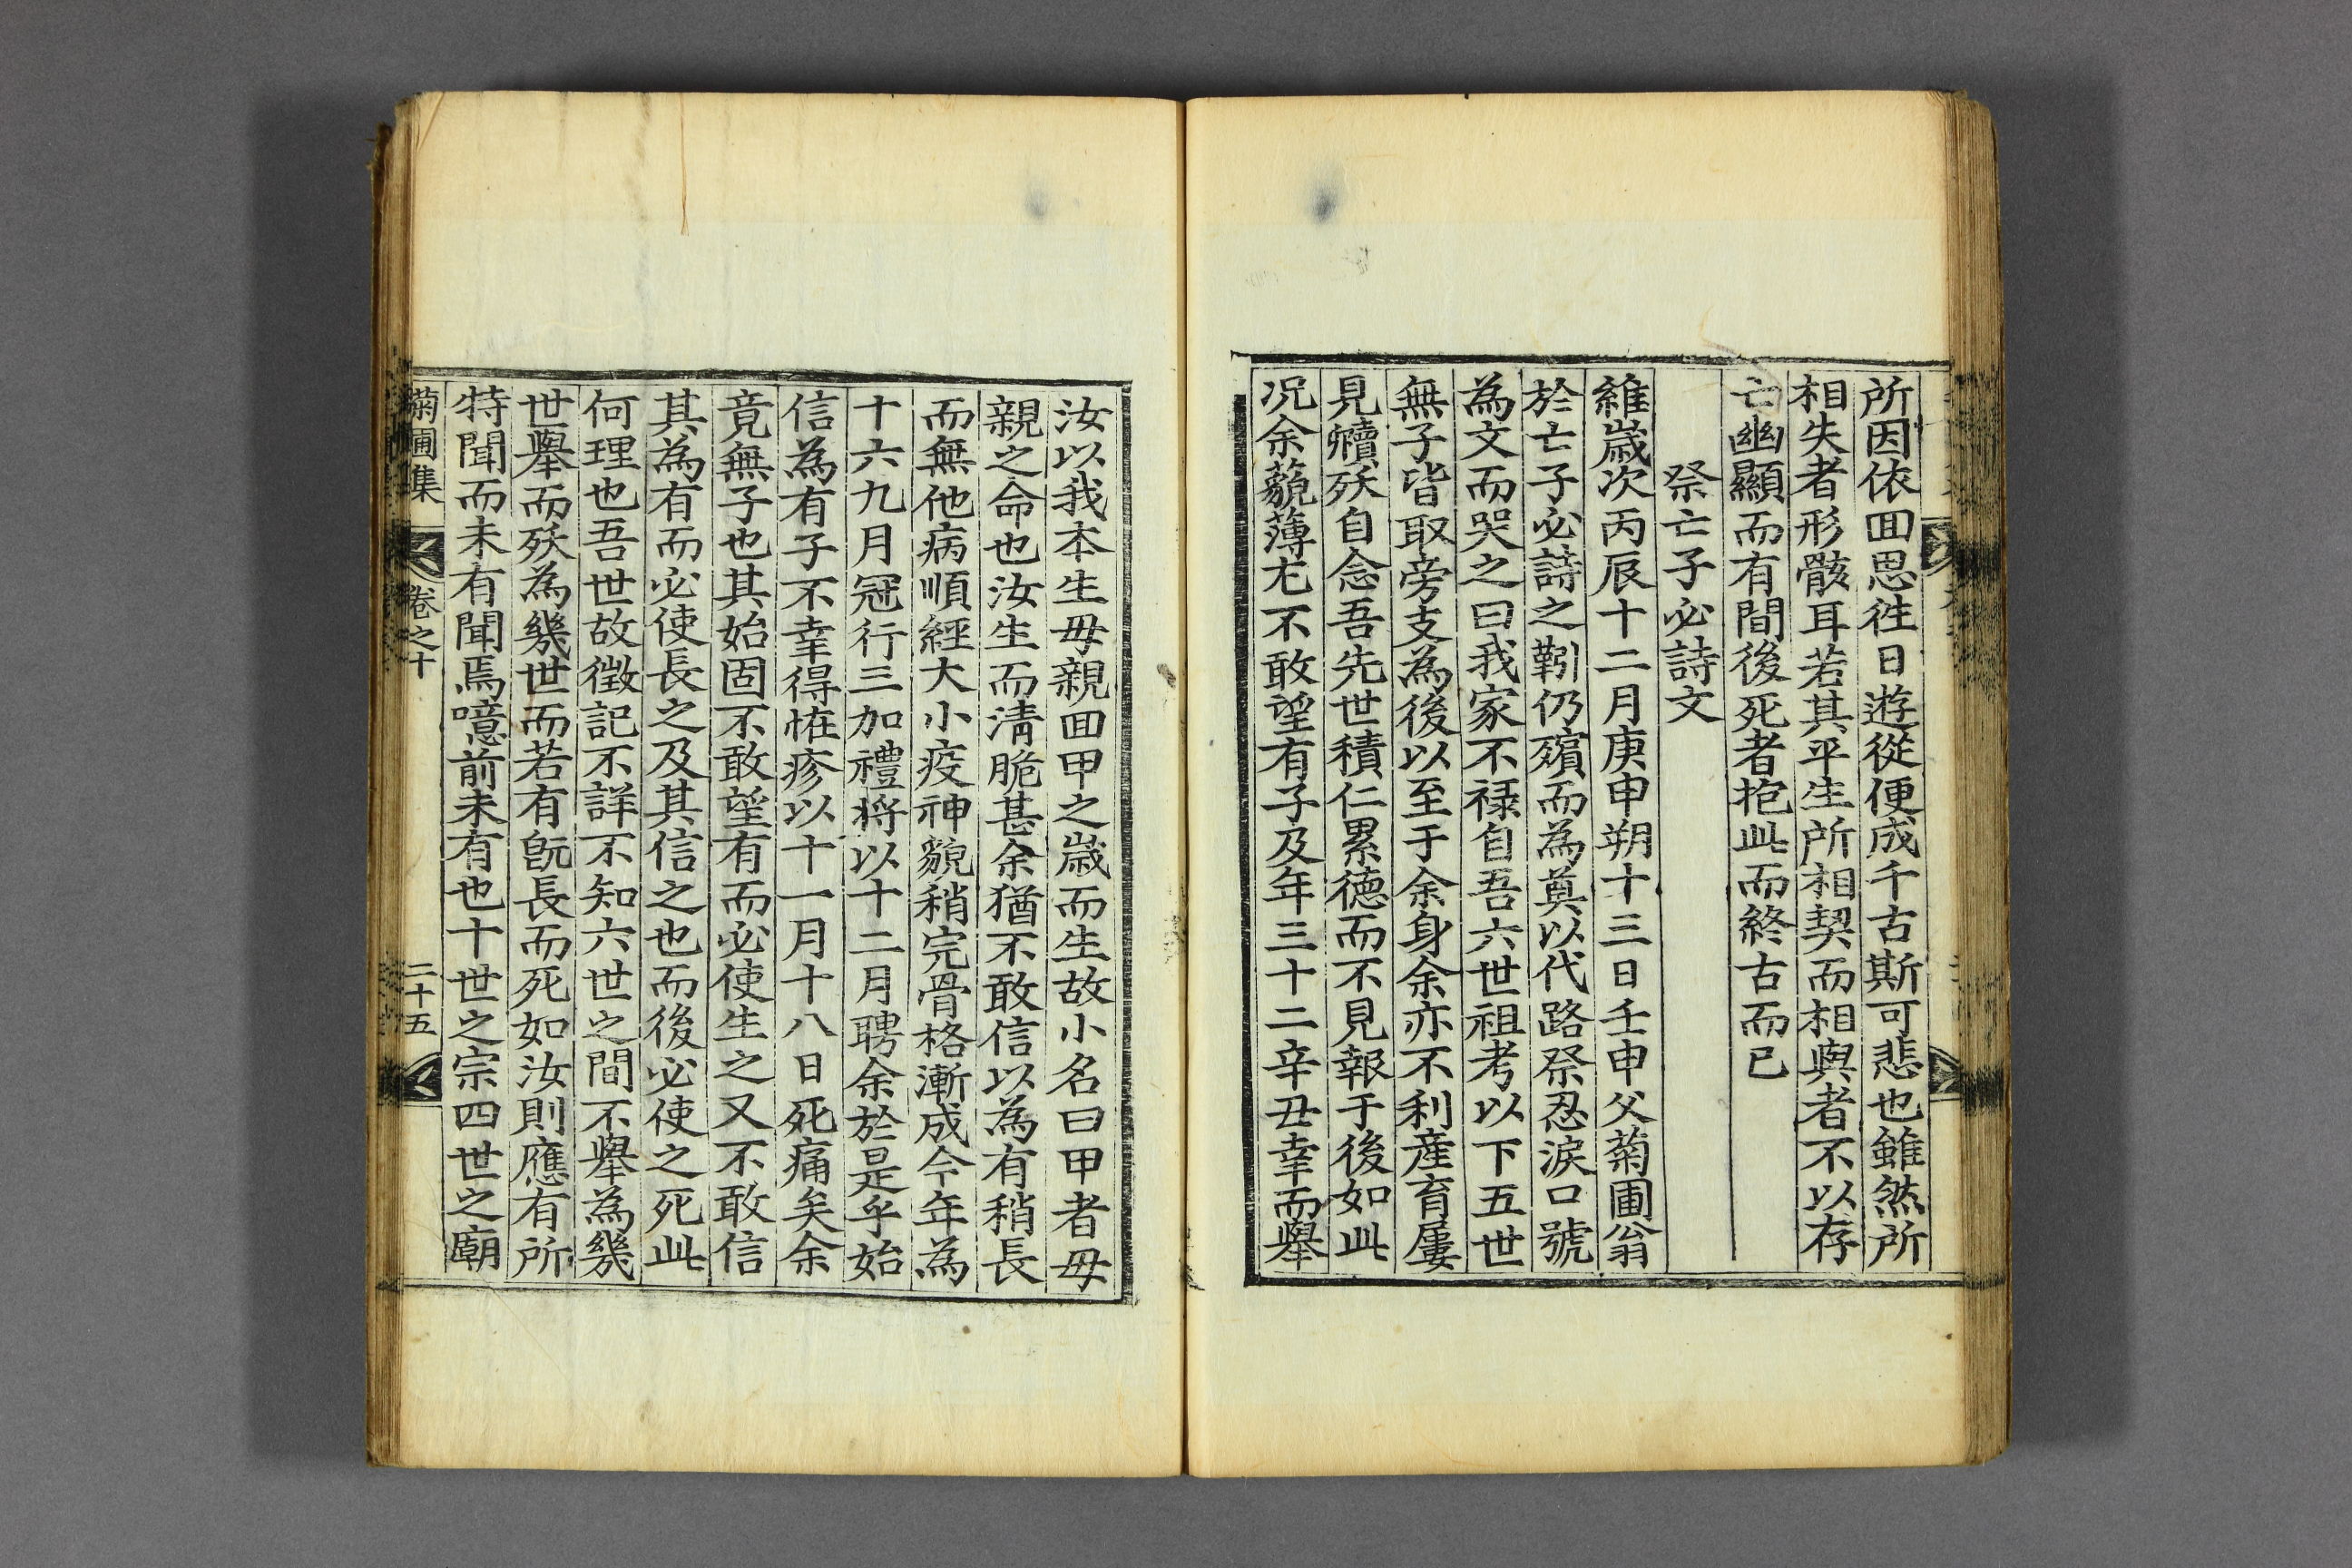 所因依囬思徃日遊從便成千古斯可悲也雖然所
相失者形骸耳若其平生所相契而相與者不以存
亡幽顯而有間後死者抱此而終古而已
祭亡子必詩文
維歲次丙辰十二月庚申朔十三日壬申父菊圃翁
於亡子必詩之靷仍殯而為奠以代路祭忍淚口號
為文而哭之曰我家不祿自吾六世祖考以下五世
無子皆取旁支為後以至于余身余亦不利產育屢
見犢殀自念吾先世積仁累德而不見報于後如此
况余藐薄尤不敢望有子及年三十二辛丑幸而舉
汝以我本生母親囬甲之歲而生故小名曰甲者母
親之命也汝生而淸脆甚余猶不敢信以為有稍長
而無他病順經大小疫神貌稍完骨格漸成今年為
十六九月冠行三加禮將以十二月聘余於是乎始
信為有子不幸得恠疹以十一月十八日死痛矣余
竟無子也其始固不敢望有而必使生之又不敢信
其為有而必使長之及其信之也而後必使之死此
何理也吾世故徵記不詳不知六世之間不舉為幾
世舉而殀為幾世而若有旣長而死如汝則應有所
特聞而未有聞焉噫前未有也十世之宗四世之廟
菊圃集 卷之十 二十五